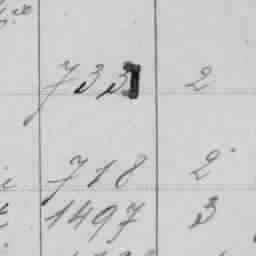 733 2
718 2
1497 3